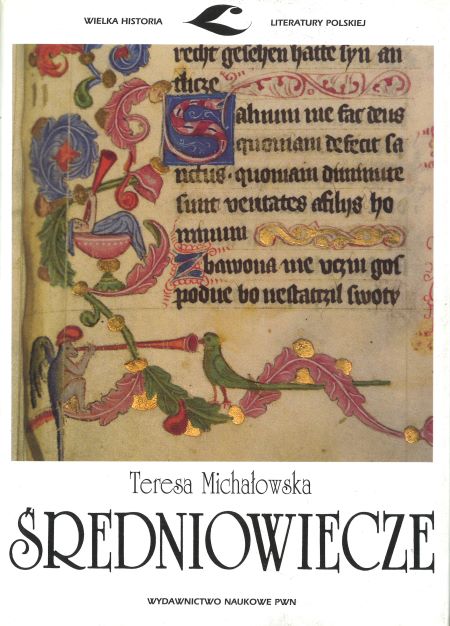 WIELKA HISTORIA LITERATURY POLSKIEJ
recht gesehen hatte syn an
tlicze
Saluum me fac deus
quoniam defecit sa
nctus · quoniam diminute
sunt veritates afilijs ho
minum
Zbawona me vczin gos
podne bo nestatczil swoty
Teresa Michałowska
ŚREDNIOWIECZE
WYDAWNICTWO NAUKOWE PWN